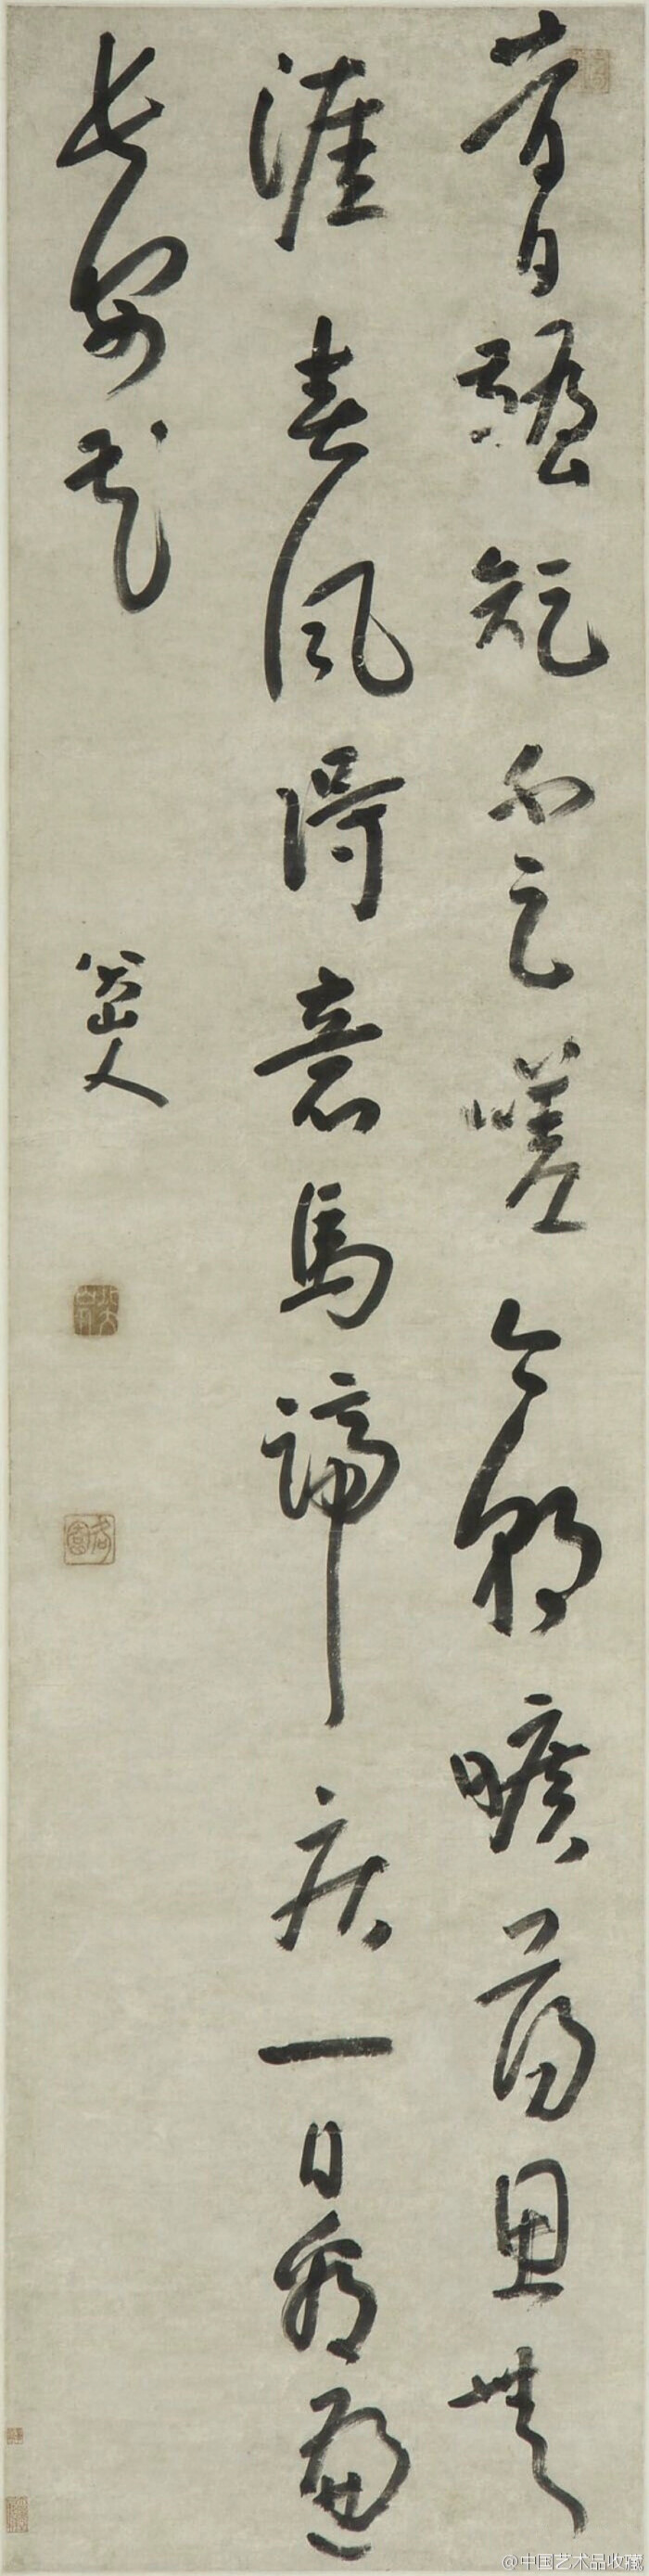 昔日齷齪不足嗟今朝曠蕩恩無
涯春風得意馬蹄疾一日看遍
長安花
八大山人
@中国艺术品收藏